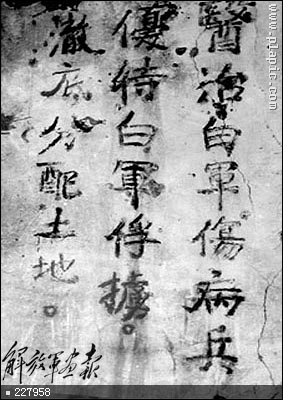 醫治白軍傷病兵
優待白軍俘擄。
澈底分配土地。
解放軍画報
227958
www.plapic.com